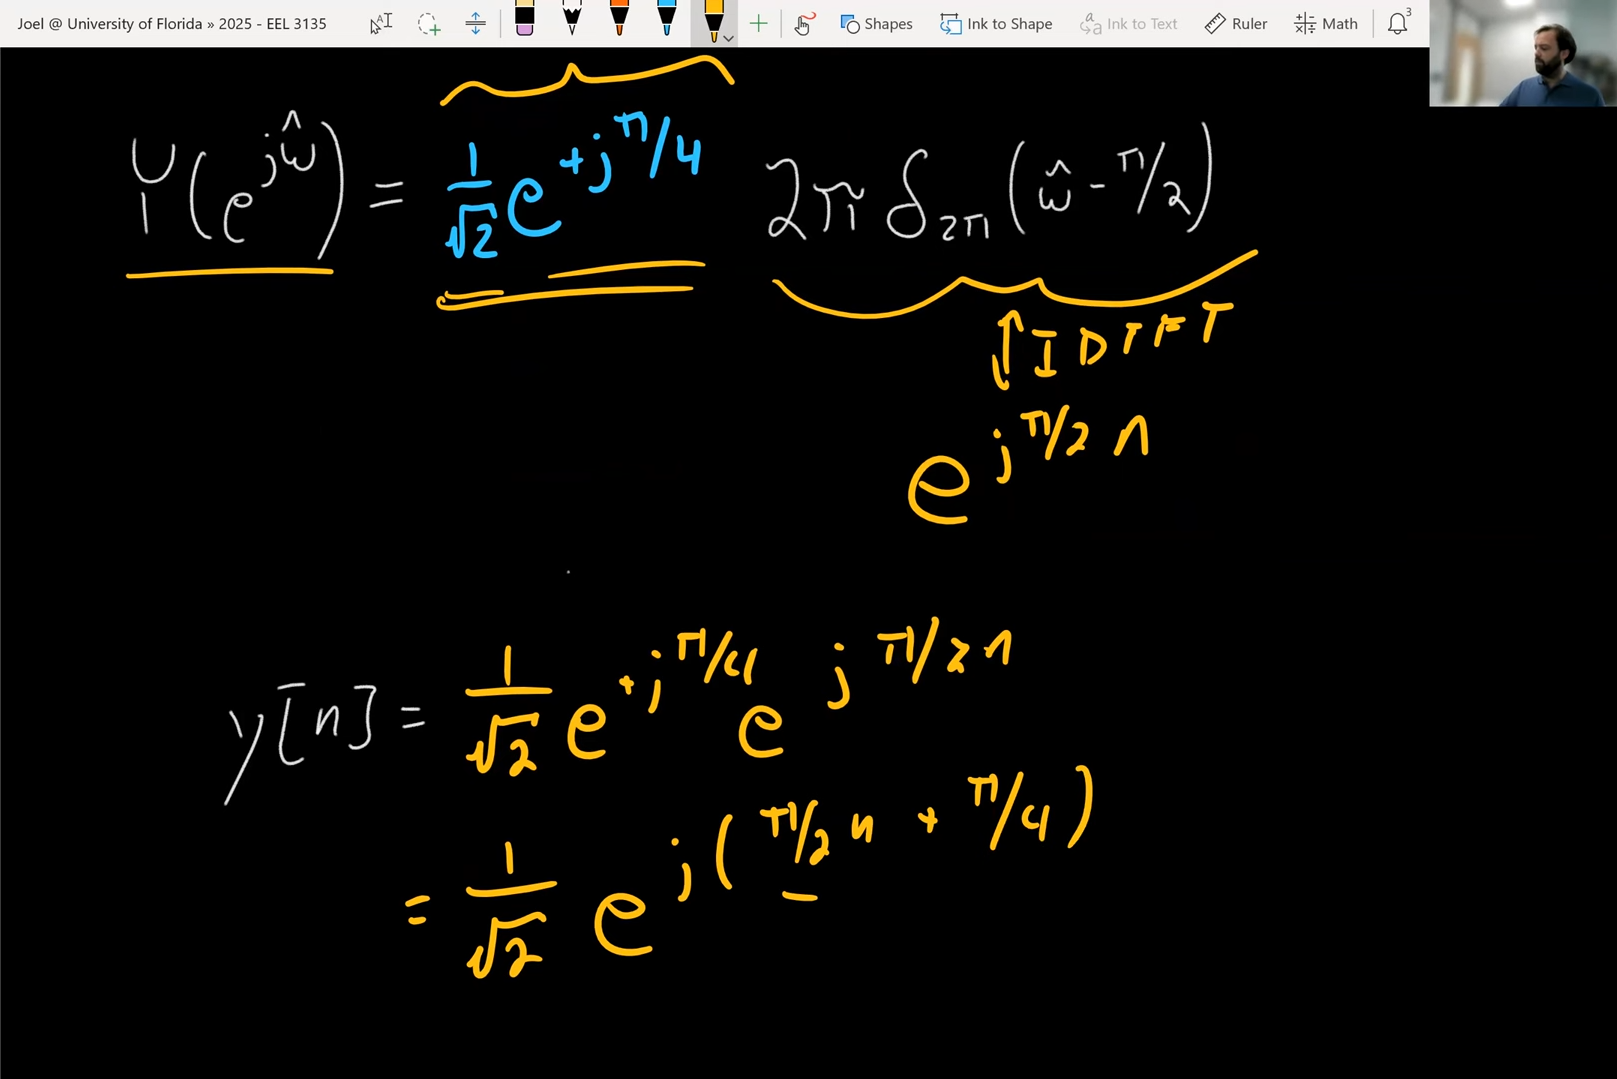 Joel @ University of Florida » 2025 - EEL 3135
Shapes Ink to Shape Ink to Text Ruler Math 3
Y(e^{jω̂}) = 1/√2 e^{+jπ/4} 2π δ_{2π}(ω̂ - π/2)
↕ IDTFT
e^{jπ/2 n}
y[n] = 1/√2 e^{+jπ/4} e^{jπ/2 n}
= 1/√2 e^{j(π/2 n + π/4)}